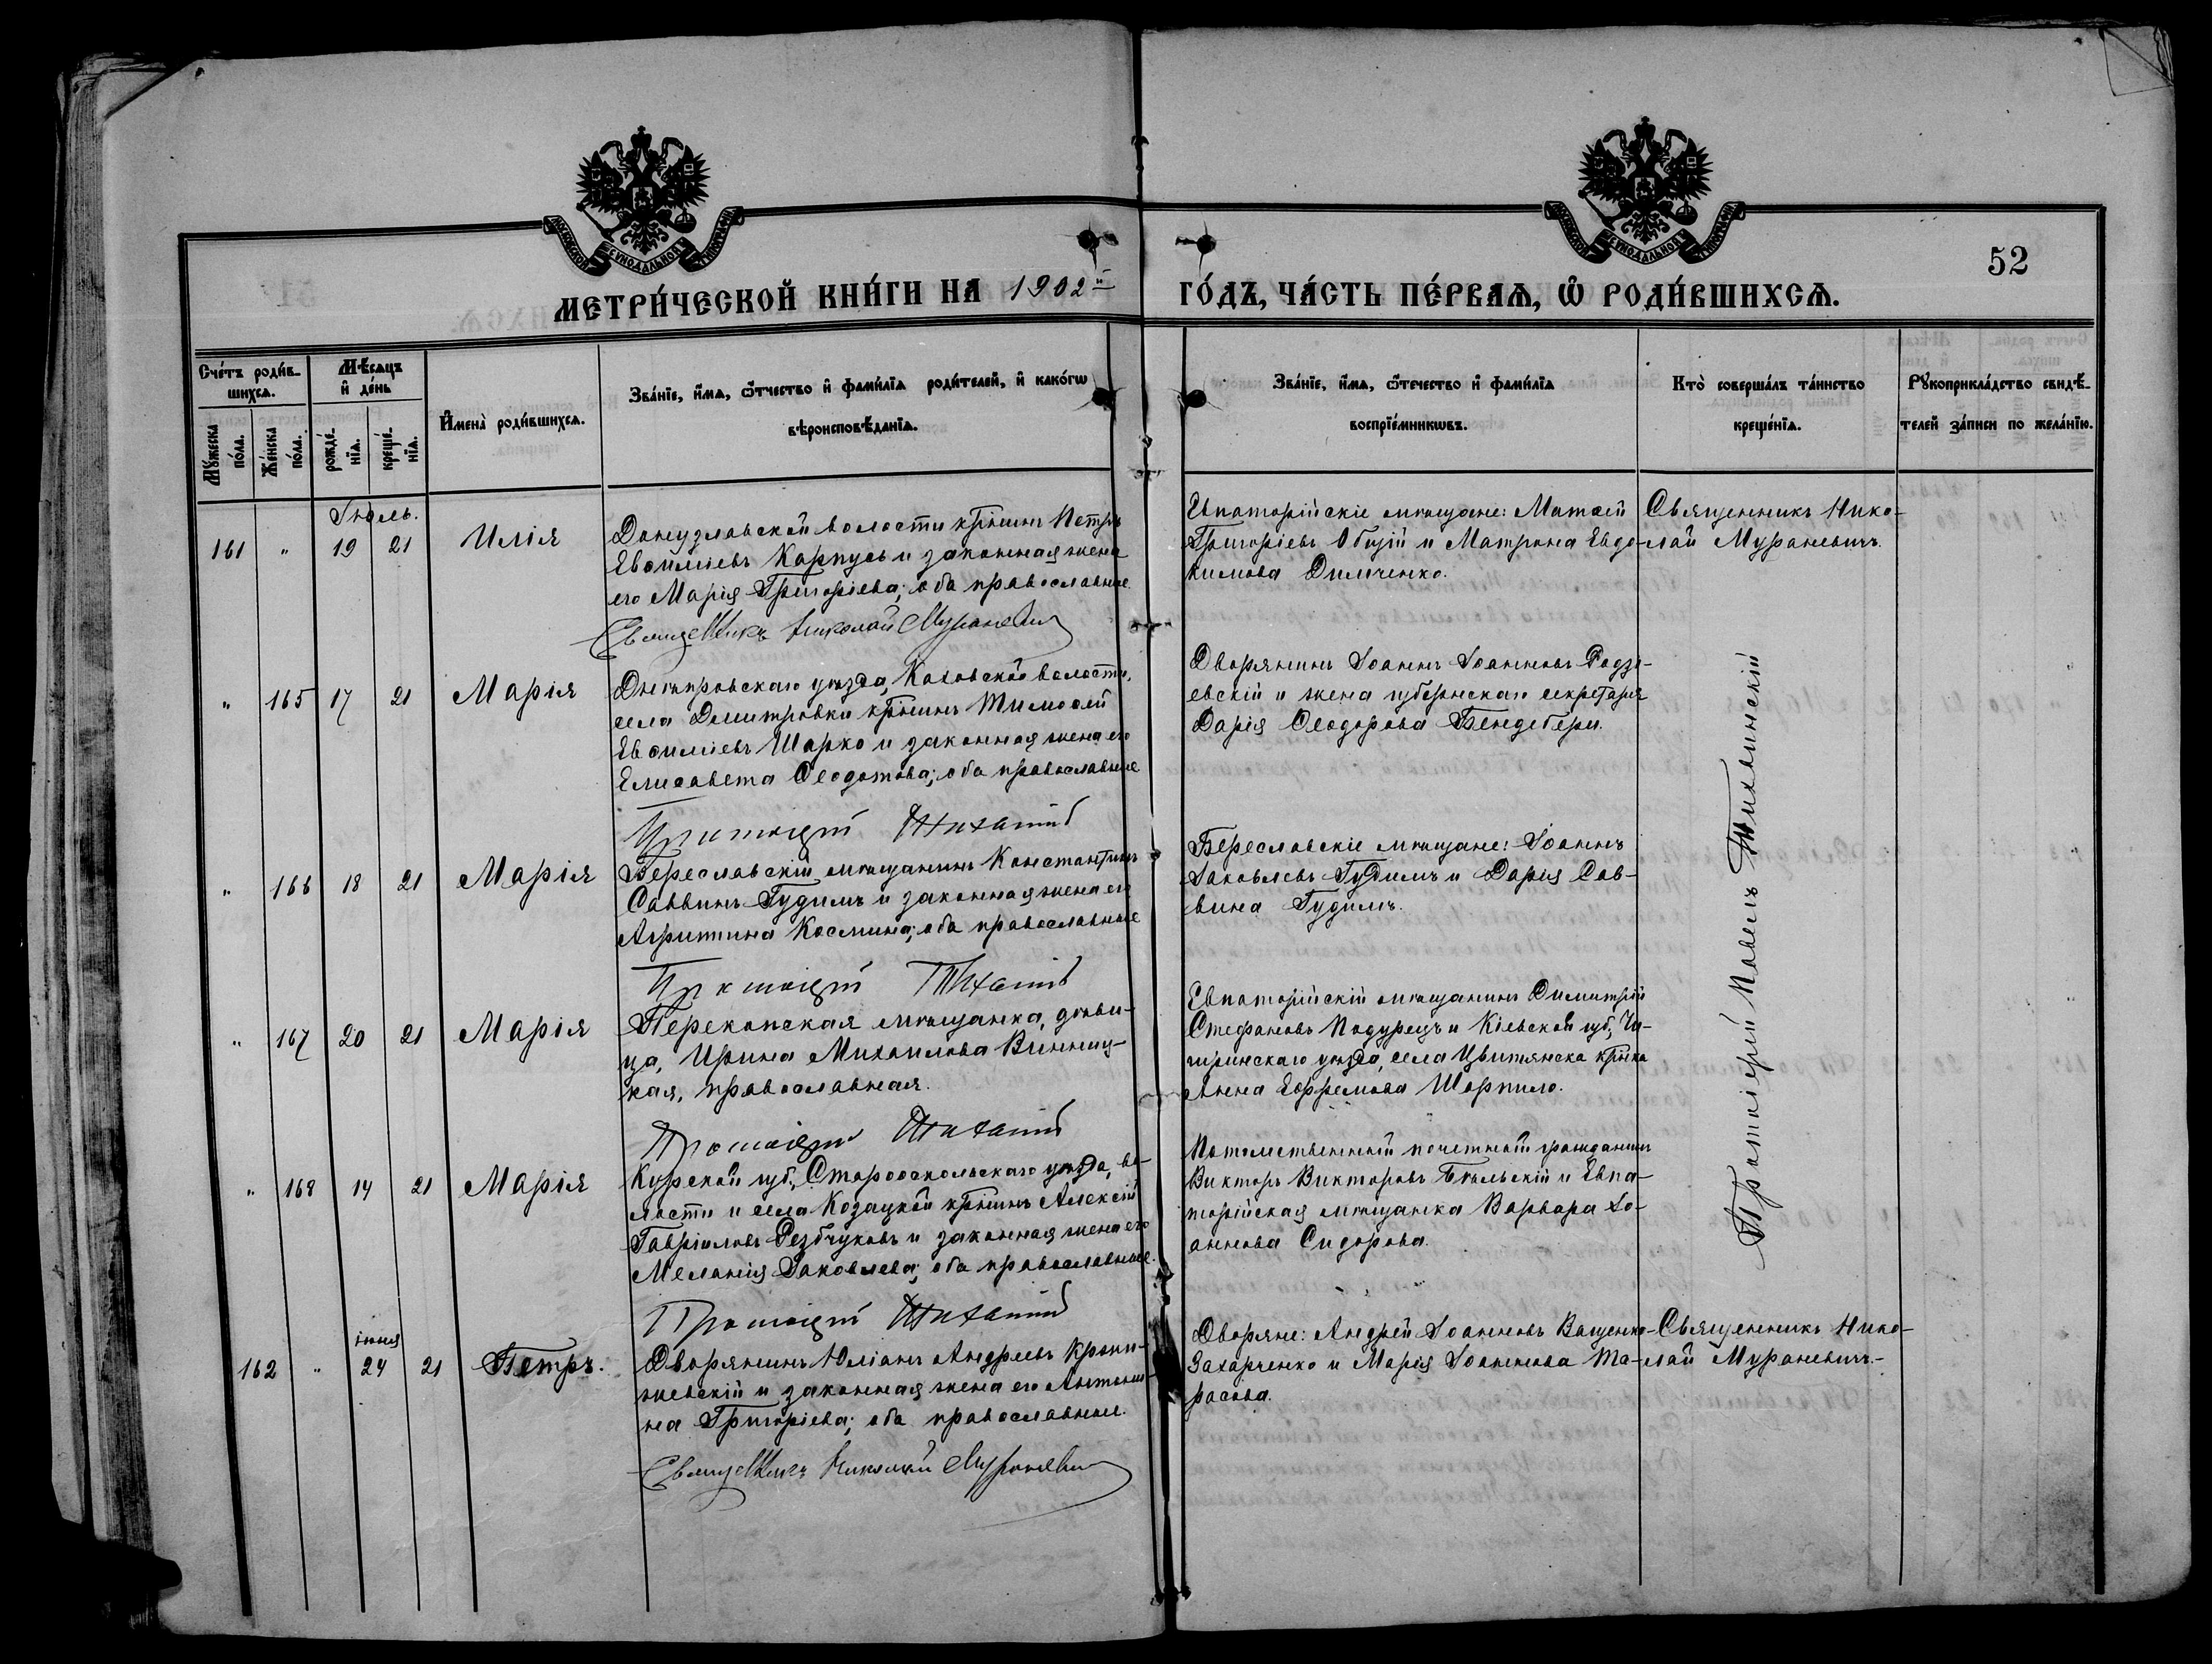 МОСКОВСКОЙ СУНОДАЛЬНОЙ ТИПОГРАФІИ
МОСКОВСКОЙ СУНОДАЛЬНОЙ ТИПОГРАФІИ
52
МЕТРИ́ЧЕСКОЙ КНИ́ГИ НА 1902й ГО́ДЪ, ЧА́СТЬ ПЕ́РВАѦ, Ѡ҆ РОДИ́ВШИХСѦ.
Сче́тъ роди́в-
шихсѧ.
Мꙋ́жеска по́ла.
Же́нска по́ла.
Мѣ́сѧцъ
и҆ де́нь
рожде́-
нїѧ.
креще́-
нїѧ.
И҆мена̀ роди́вшихсѧ.
Зва́нїе, и҆́мѧ, ѻ҆́тчество и҆ фами́лїѧ роди́телей, и҆ како́гѡ
вѣроисповѣ́данїѧ.
Зва́нїе, и҆́мѧ, ѻ҆те́чество и҆ фами́лїѧ
воспрїе́мникѡвъ.
Кто̀ соверша́лъ та́инство
креще́нїѧ.
Рꙋкоприкла́дство свидѣ́-
телей за́писи по жела́нїю.
Іюль.
161 " 19 21 Илія
Донузлавской волости кр̃нинъ Петръ
Евѳиміевъ Карпусь и законная жена
его Марія Григоріева; оба православные
Священникъ Николай Мураневичъ
Евпаторійскіе мѣщане: Матѳей
Григоріевъ Обцій и Матрона Евдо-
кимова Димченко.
Священникъ Нико-
лай Мураневичъ.
" 165 17 21 Марія
Днѣпровскаго уѣзда, Каховской волости,
села Димитровки кр̃нинъ Тимоѳей
Евѳиміевъ Шарко и законная жена его
Елисавета Ѳеодотова; оба православные
Протоіерей
Дворянинъ Іоаннъ Іоанновъ Родзе-
евскій и жена губернскаго секретаря
Дарія Ѳеодорова Бендебери.
Протоіерей Павелъ Тиховинскій
" 166 18 21 Марія
Береславскій мѣщанинъ Константинъ
Саввинъ Гудимъ и законная жена его
Агриппина Космина; оба православные
Протоіерей
Береславскіе мѣщане: Іоаннъ
Іаковлевъ Гудимъ и Дарія Сав-
вина Гудимъ.
" 167 20 21 Марія
Перекопская мѣщанка, дѣви-
ца, Ирина Михаилова Винниц-
кая, православная.
Протоіерей
Евпаторійскій мѣщанинъ Димитрій
Стефановъ Подурецъ и Кіевской губ., Чи-
гиринскаго уѣзда, села Цвитянска кр̃нка
Анна Ефремова Шарпило.
" 168 14 21 Марія
Курской губ., Старооскольскаго уѣзда, во-
лости и села Козацкой кр̃нинъ Алексій
Гавріиловъ Резбчуковъ и законная жена его
Меланія Іаковлева; оба православные.
Протоіерей
Потомственный почетный гражданинъ
Викторъ Викторовъ Бѣльскій и Евпа-
торійская мѣщанка Варвара Іо-
аннова Сидорова.
іюня
162 " 24 21 Петръ.
Дворянинъ Юліанъ Андреевъ Крыжи-
жевскій и законная жена его Антони-
на Григоріева; оба православные.
Священникъ Николай Мураневичъ
Дворяне: Андрей Іоанновъ Ващенко-
Захарченко и Марія Іоаннова Та-
расова.
Священникъ Нико-
лай Мураневичъ.